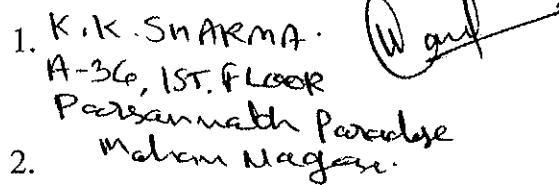 1. K.K. SHARMA.
A-36, IST. FLOOR
Parsannath Paradise
2. Mohan Nagar.